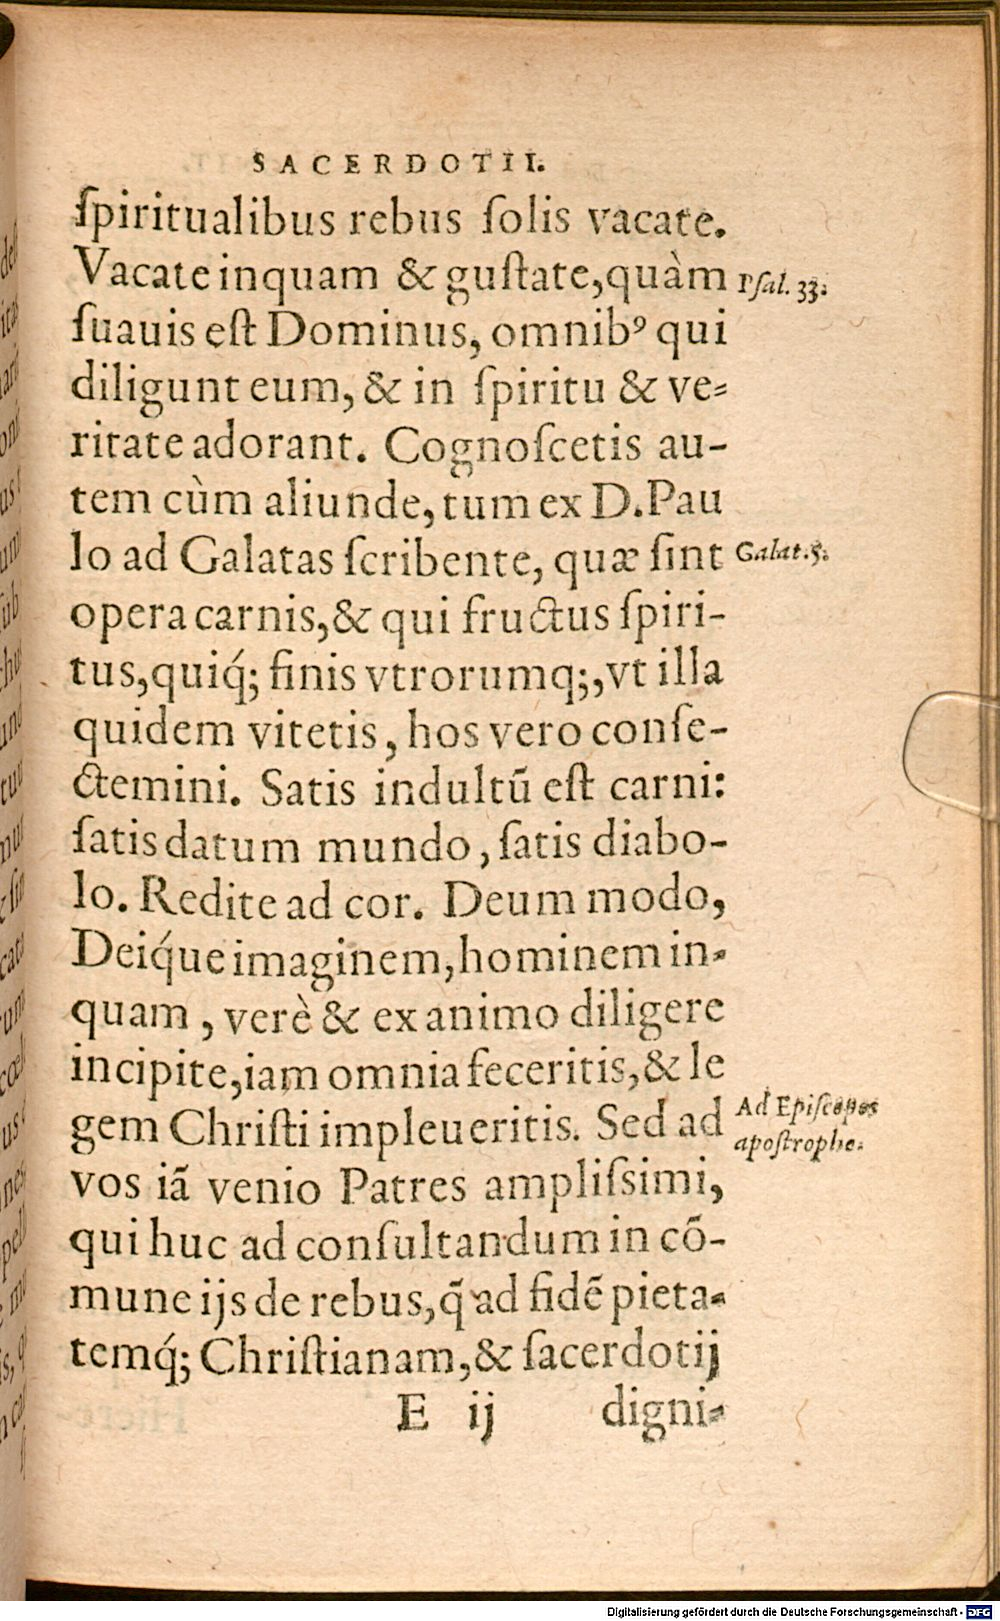 SACERDOTII.
ſpiritualibus rebus ſolis vacate.
Vacate inquam & guſtate, quàm
Pſal. 33.
ſuauis eſt Dominus, omnibꝰ qui
diligunt eum, & in ſpiritu & ve-
ritate adorant. Cognoſcetis au-
tem cùm aliunde, tum ex D. Pau
lo ad Galatas ſcribente, quæ ſint
Galat. 5.
opera carnis, & qui fructus ſpiri-
tus, quiq́; finis vtrorumq;, vt illa
quidem vitetis, hos vero conſe-
ctemini. Satis indultū eſt carni:
ſatis datum mundo, ſatis diabo-
lo. Redite ad cor. Deum modo,
Deiq́ue imaginem, hominem in-
quam, verè & ex animo diligere
incipite, iam omnia feceritis, & le
gem Chriſti impleueritis. Sed ad
Ad Epiſcopos
apoſtrophe.
vos iā venio Patres ampliſsimi,
qui huc ad conſultandum in cō-
mune ijs de rebus, q̄ ad fidē pieta-
temq́; Chriſtianam, & ſacerdotij
E ij digni-
Digitalisierung gefördert durch die Deutsche Forschungsgemeinschaft - DFG